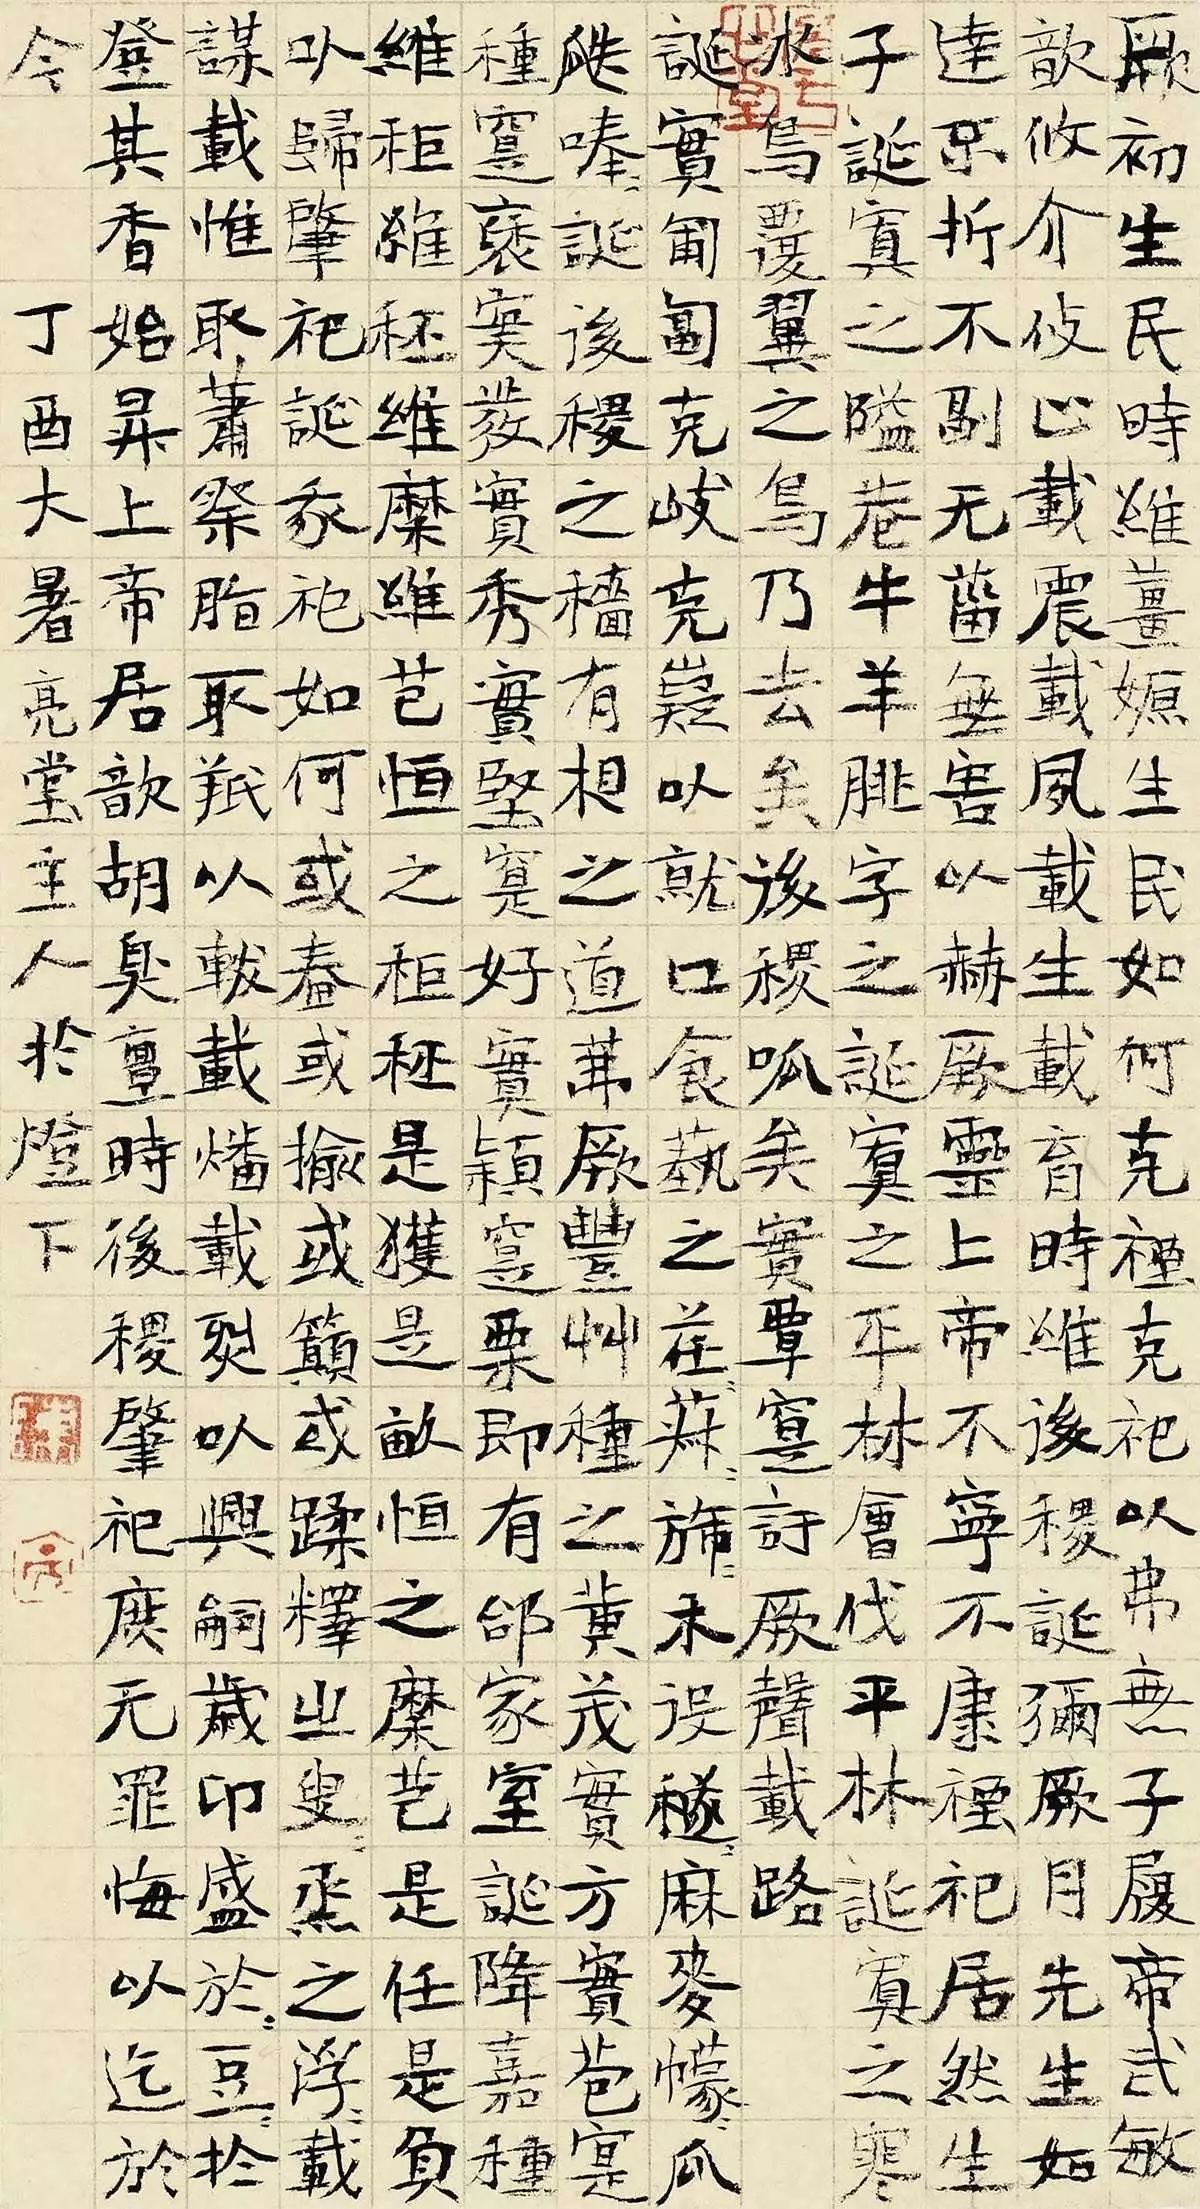 厥初生民時維薑嫄生民如何克禋克祀以弗無子履帝武敏
歆攸介攸止載震載夙載生載育時維後稷誕彌厥月先生如
達不折不副无菑無害以赫厥靈上帝不寧不康禋祀居然生
子誕寘之隘巷牛羊腓字之誕寘之平林會伐平林誕寘之寒
冰鳥覆翼之鳥乃去矣後稷呱矣實覃寔訏厥聲載路
誕實匍匐克岐克嶷以就口食蓺之荏=菽=旆=禾役穟=麻麥幪=瓜
瓞唪=誕後稷之穡有相之道茀厥豐艸種之黃茂實方實苞寔
種寔褎實發實秀實堅寔好實穎寔栗即有邰家室誕降嘉種
維秬維秠維穈維芑恒之秬秠是獲是畝恒之穈芑是任是負
以歸肇祀誕我祀如何或舂或揄或簸或蹂釋之叟=烝之浮=載
謀載惟取蕭祭脂取羝以軷載燔載烈以興嗣歲卬盛於=豆=於
登其香始昇上帝居歆胡臭亶時後稷肇祀庶无罪悔以迄於
今 丁酉大暑亮堂主人於燈下